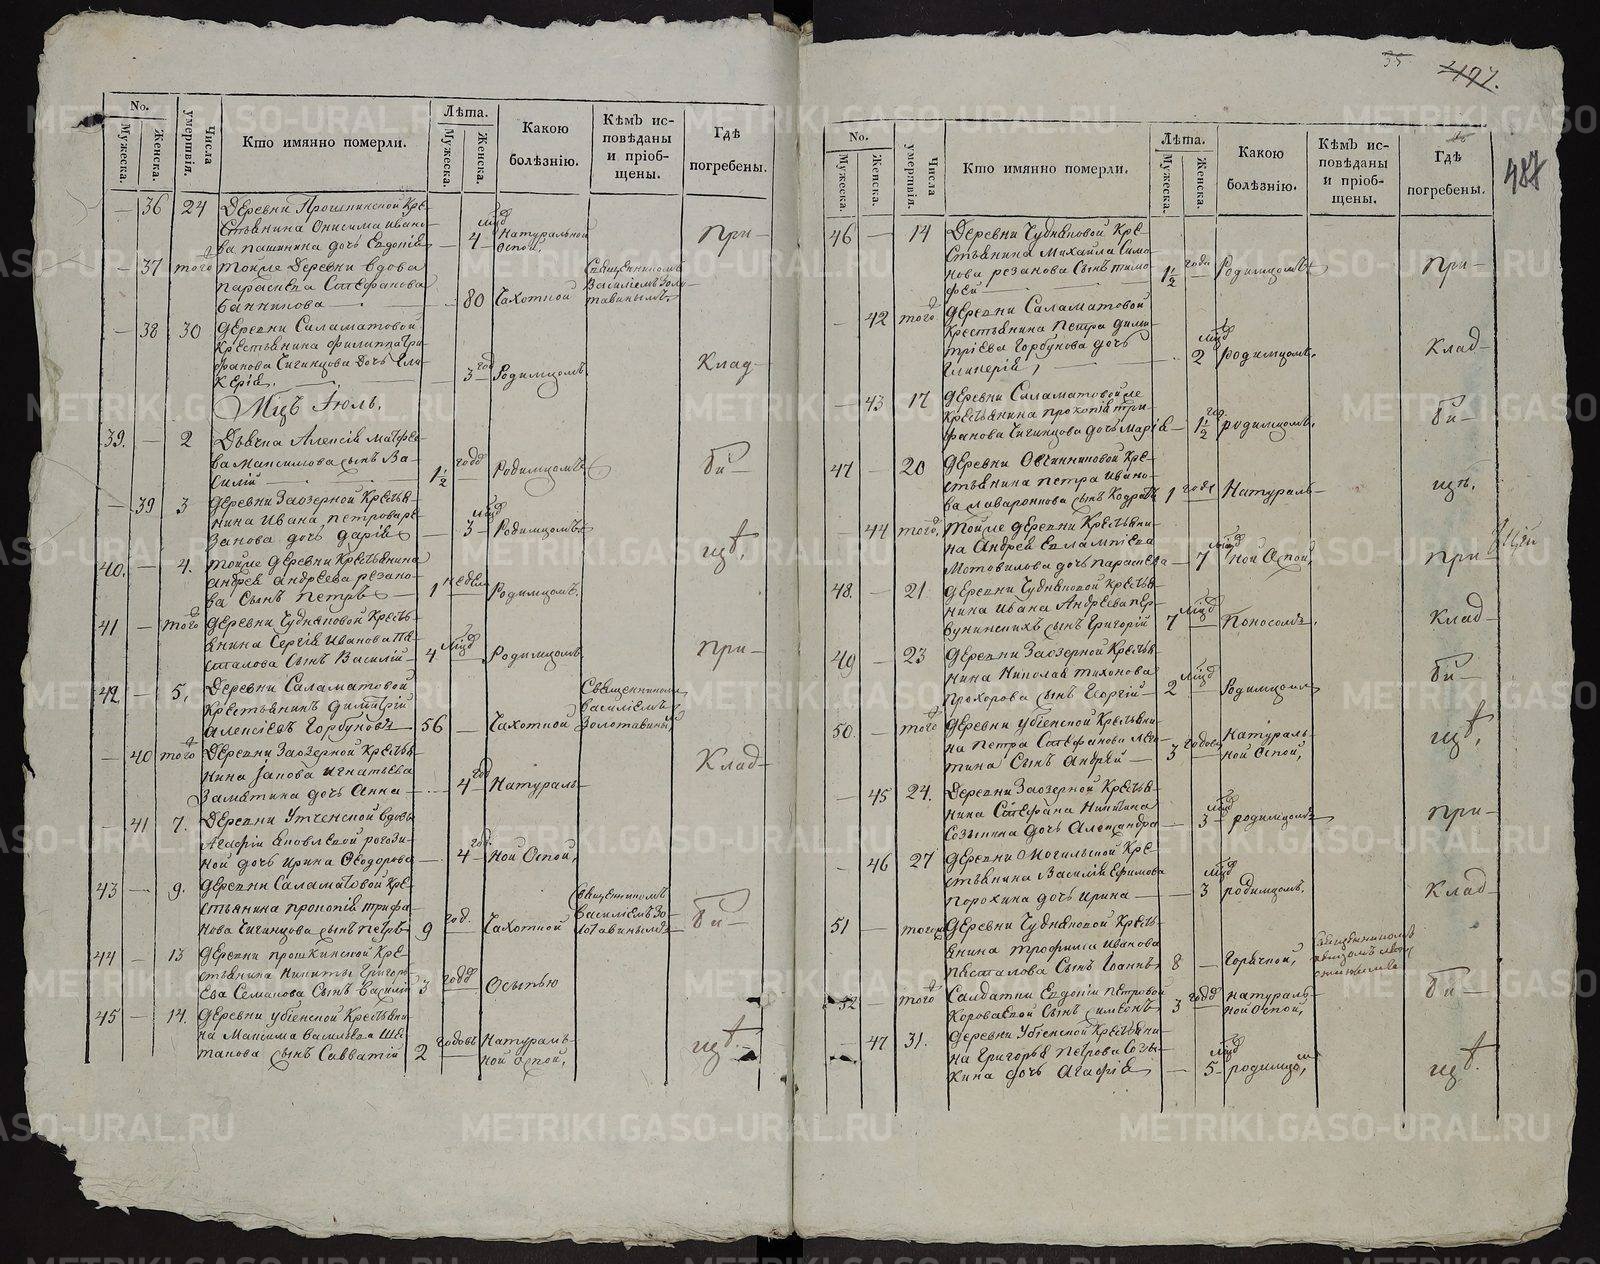 No.
Мужеска.
Женска.
Числа умертвія.
Кто имянно померли.
Лѣта.
Мужеска.
Женска.
Какою болѣзнію.
Кѣмъ исповѣданы и пріобщены.
Гдѣ погребены.
— 36 24 Деревни Прошкинской Кре-
стьянина Онисима Ивано-
ва пашинина дочь Евдокія — 4 мцд Натуральной оспой. при-
— 37 того Тойже Деревни вдова
параскева Стефанова
Банникова — 80 Чахотной Священникомъ Василіемъ Золотавинымъ
— 38 30 Деревни Саламатовой
Крестьянина Филиппа Три-
фанова Чигинцова Дочь Гли-
керія. — 3 год Родимцомъ. Клад-
Мцъ Іюль.
39. — 2 Дьячка Алексія Матфее-
ва Максимова сынъ Ва-
силій 1 1/2 года Родимцомъ би-
— 39 3 Деревни Заозерной Крестья-
нина Ивана петрова ре-
занова дочь дарія — 3 мцд Родимцомъ щѣ,
40. — 4. тойже деревни Крестьянина
андрея андреева резано-
ва Сынъ петръ — 1 недел Родимцомъ.
41 — того Деревни Чудняковой Кресть-
янина Сергія Иванова Па-
сталова Сынъ Василій — 4 мцд Родимцомъ при-
42. — 5. Деревни Саламатовой
Крестьянинъ димитрій
алексіевъ Горбуновъ 56 — Чахотной Священникомъ Василіемъ Золотавинымъ
— 40 того Деревни Заозерной Крестья-
нина Іакова Игнатьева
Замятина дочь Анна — 4 год Натураль- Клад-
— 41 7. Деревни Утченской вдовы
Агафіи Яковлевой рогози-
ной дочь Ирина Феодорова — 4 год. ной Оспой,
43 — 9. Деревни Саламатовой Кре-
стьянина прокопія трифа-
нова Чигинцова сынъ петръ 9 год. Чахотной Священникомъ Василіемъ Золотавинымъ би-
44 — 13 Деревни прошкинской Кре-
стьянина Никиты Григорь-
ева Семакова Сынъ Василій 3 года Осыпью
45 — 14. Деревни убіенской Крестьяни-
на Максима Васильева Шес-
такова сынъ Савватій 2 годовъ Натураль-ной оспой, щѣ.
35
497.
488
No.
Мужеска.
Женска.
Числа умертвія.
Кто имянно померли.
Лѣта.
Мужеска.
Женска.
Какою болѣзнію.
Кѣмъ исповѣданы и пріобщены.
Гдѣ погребены.
46 — 14 Деревни Чудняковой Кре-
стьянина Михайла Симо-
нова резанова Сынъ тимо-
фей 1 1/2 года Родимцомъ при-
— 42 того Деревни Саламатовой
Крестьянина Петра дими-
тріева Горбунова дочь
гликерія, — 2 мцд родимцомъ. клад-
— 43 17 Деревни Саламатовойже
Крестьянина прокопія три-
фанова Чигинцова дочь Марія — 1 1/2 год. родимцомъ. би-
47 — 20 Деревни Овчинниковой Кре-
стьянина петра Ивано-
ва лаваронкова сынъ Кодратъ 1 года Натураль- щѣ.
— 44 того, тойже деревни Крестьяни-
на Андрея Евлампіева
Мотовилова дочь параскева — 7 мцд ной Оспой, при-
48. — 21 Деревни Чудняковой крестья-
нина ивана Андреева пер-
вунинскихъ сынъ григорій 7 мцд Поносомъ. клад-
49 — 23 Деревни Заозерной Крестья-
нина Николая тихонова
прохорова сынъ Георгій — 2 мцд Родимцомъ би-
50. — того Деревни убіенской Крестьяни-
на петра Стефанова
сынъ андрей — 3 годовъ Натураль-ной оспой, щѣ,
— 45 24. Деревни Заозерной Крестья-
нина Стефана Никитина
Созыкина дочь Александра — 3 мцд родимцомъ при-
— 46 27 Деревни Могильской Кре-
стьянина Василія Ефимова
порохина дочь Ирина — 3 мцд родимцомъ. клад-
51 — тогож Деревни Чудняковой Кресть-
янина трофима Иванова
пасталова Сынъ Іоаннъ 8 — Горячкой,
52 — того Салдатки Евдокіи петровой
Короваевой сынъ симеонъ 3 года натураль-ной Оспой, би-
— 47 31. Деревни Убіенской Крестьяни-
на Григорья петрова Созы-
кина дочь Агафія — 5 мцд родимцом, щѣ.
METRIKI.GASO-URAL.RU